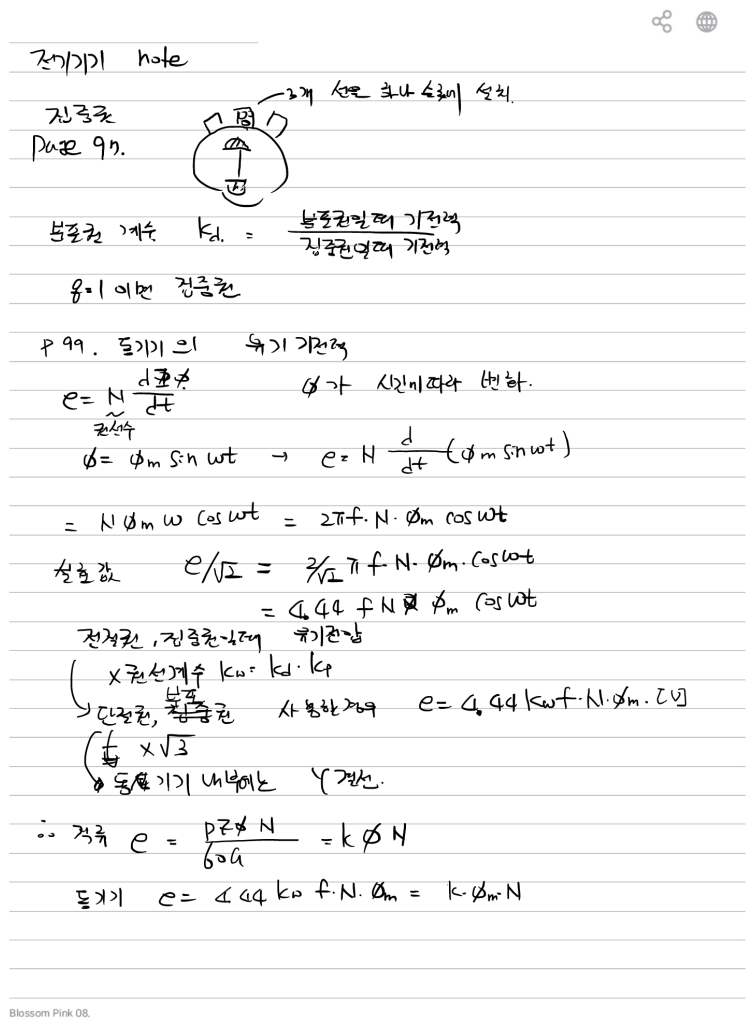 전기기기 note
3개 선을 하나 슬롯에 설치.
집중권
Page 97.
분포권 계수 kd. = 분포권일때 기전력 / 집중권일때 기전력
q=1 이면 집중권
P 99. 동기기의 유기기전력
e = N dΦ/dt ϕ가 시간에따라 변화.
권선수
ϕ = ϕm sin wt → e = N d/dt (ϕm sin wt)
= N ϕm w cos wt = 2πf·N·ϕm cos wt
실효값 e/√2 = 2/√2 π f·N·ϕm·cos wt
= 4.44 f N ϕm cos wt
전절권, 집중권일때 유기전압
x 권선계수 kw = kd·kp
분포
단절권, 집중권 사용한경우 e = 4.44 kw f·N·ϕm·[V]
x √3
동기기 내부에는 Y결선.
∴ 직류 e = PZϕN / 60a = k ϕ N
동기기 e = 4.44 kw f·N·ϕm = k·ϕm·N
Blossom Pink 08.